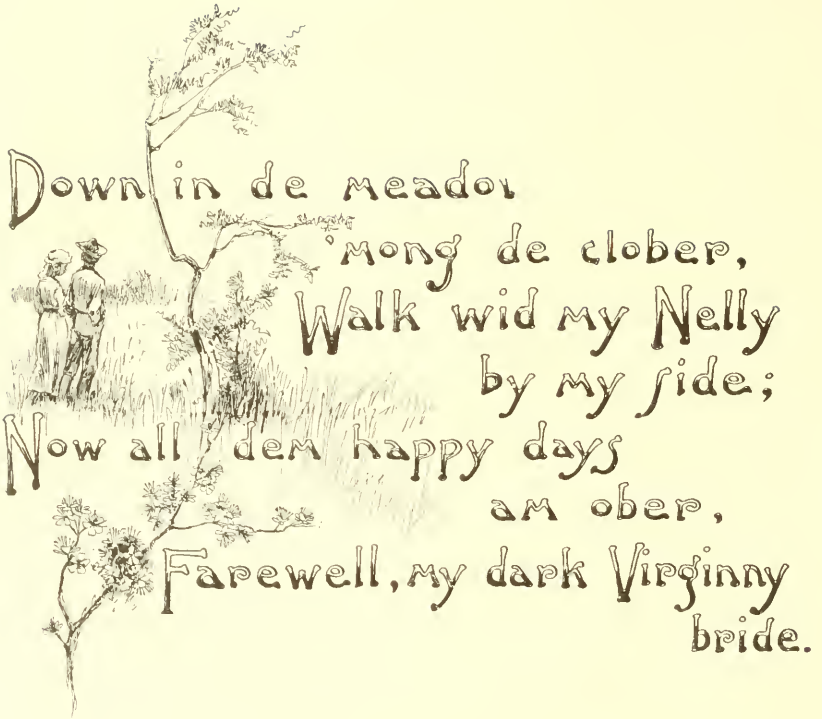 Down in de meadow
'mong de clober,
Walk wid my Nelly
by my side;
Now all dem happy days
am ober,
Farewell, my dark Virginny
bride.